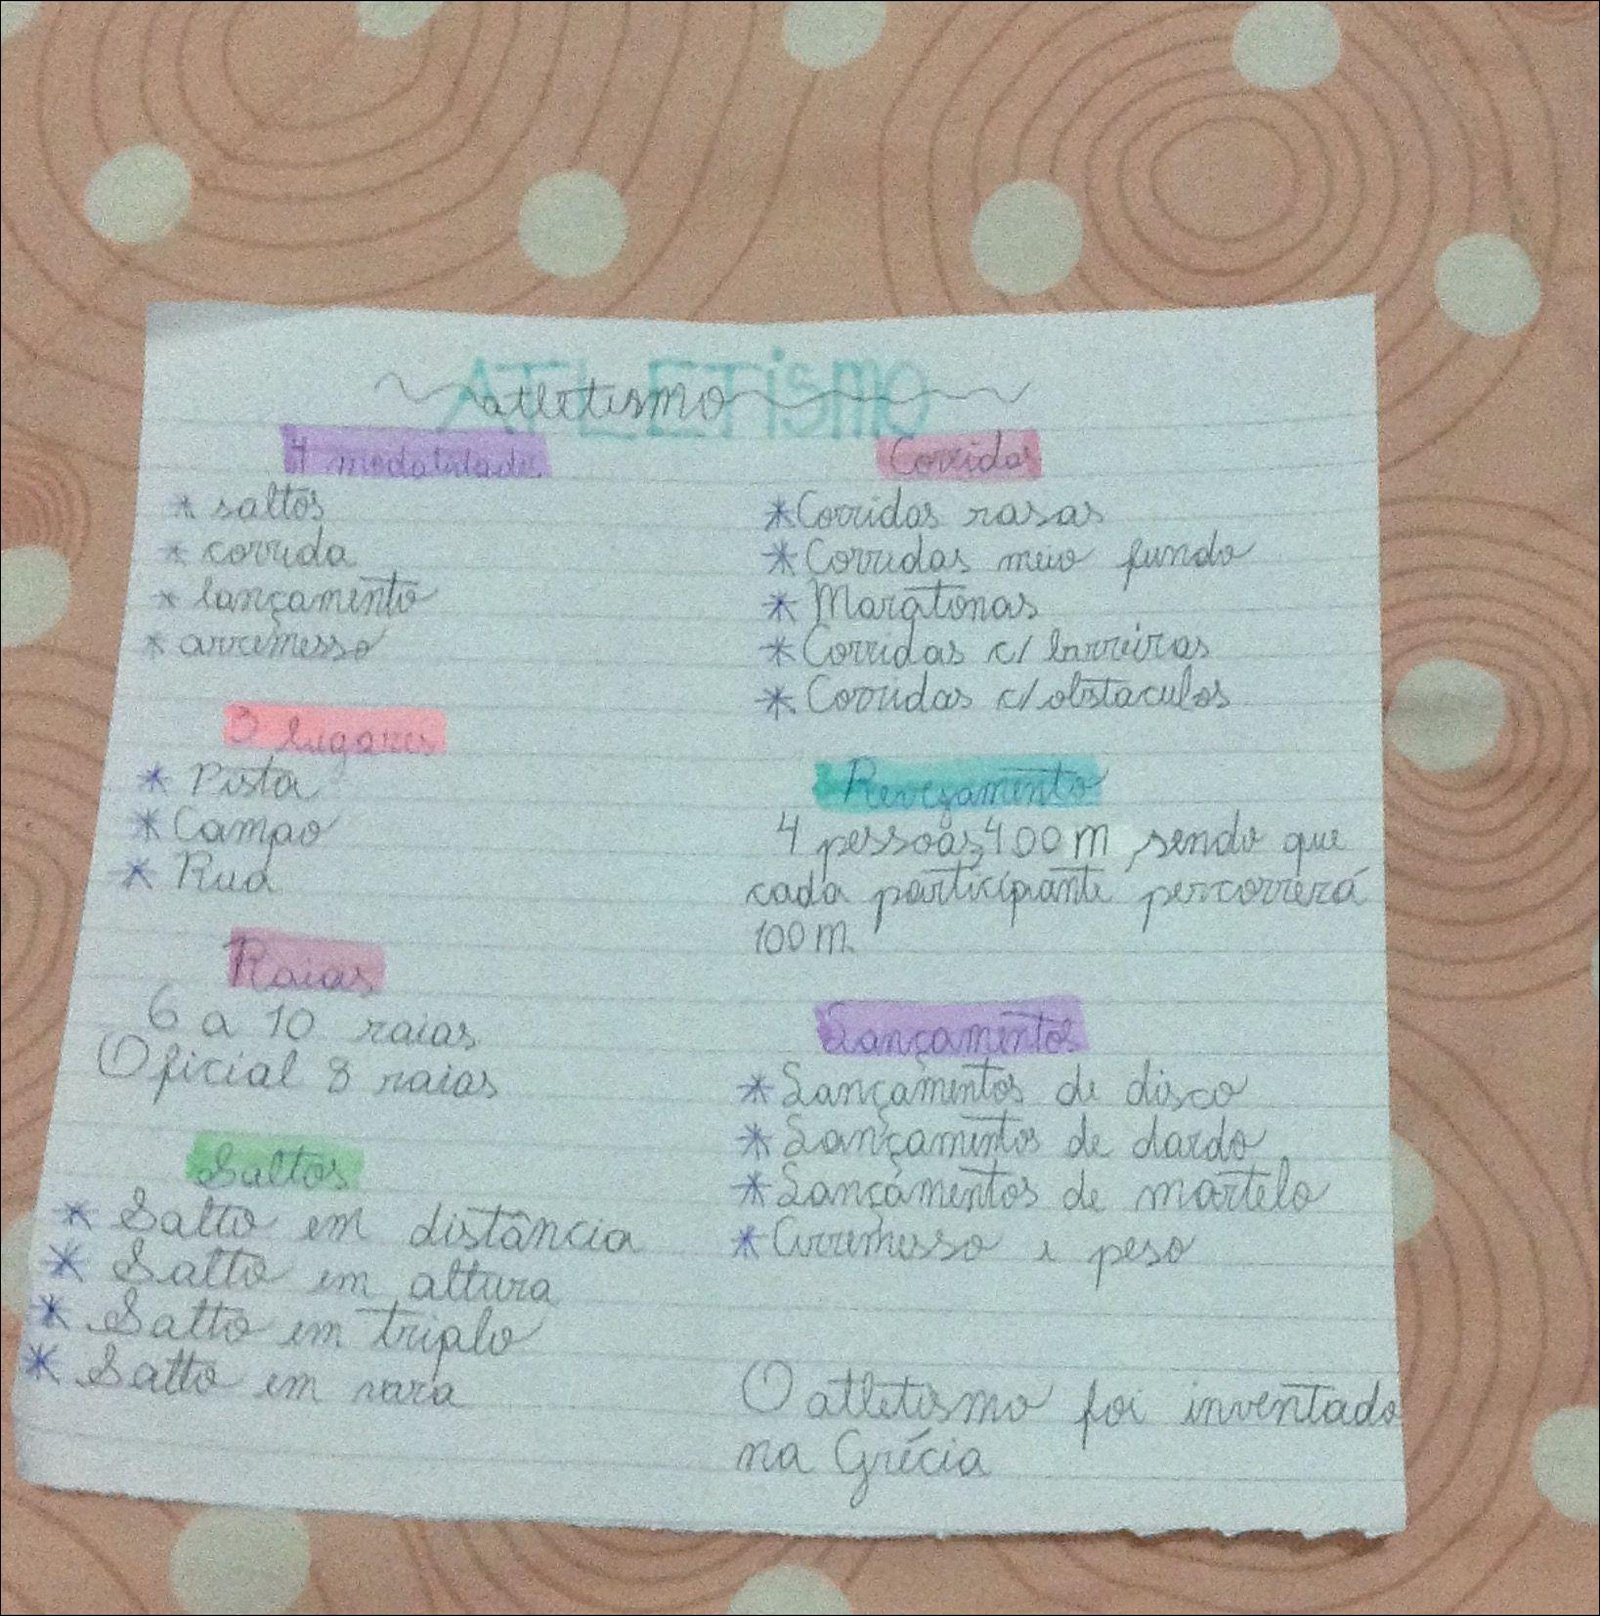 ATLETISMO
atletismo
4 modalidades
* saltos
* corrida
* lançamento
* arremesso
3 lugares
* Pista
* Campo
* Rua
Raias
6 a 10 raias
Oficial 8 raias
Saltos
* Salto em distância
* Salto em altura
* Salto em triplo
* Salto em vara
Corridas
* Corridas rasas
* Corridas meio fundo
* Maratonas
* Corridas c/ barreiras
* Corridas c/ obstaculos
Revezamento
4 pessoas, 400 m, sendo que
cada participante percorrerá
100 m.
Lançamentos
* Lançamentos de disco
* Lançamentos de dardo
* Lançamentos de martelo
* Arremesso e peso
O atletismo foi inventado
na Grécia